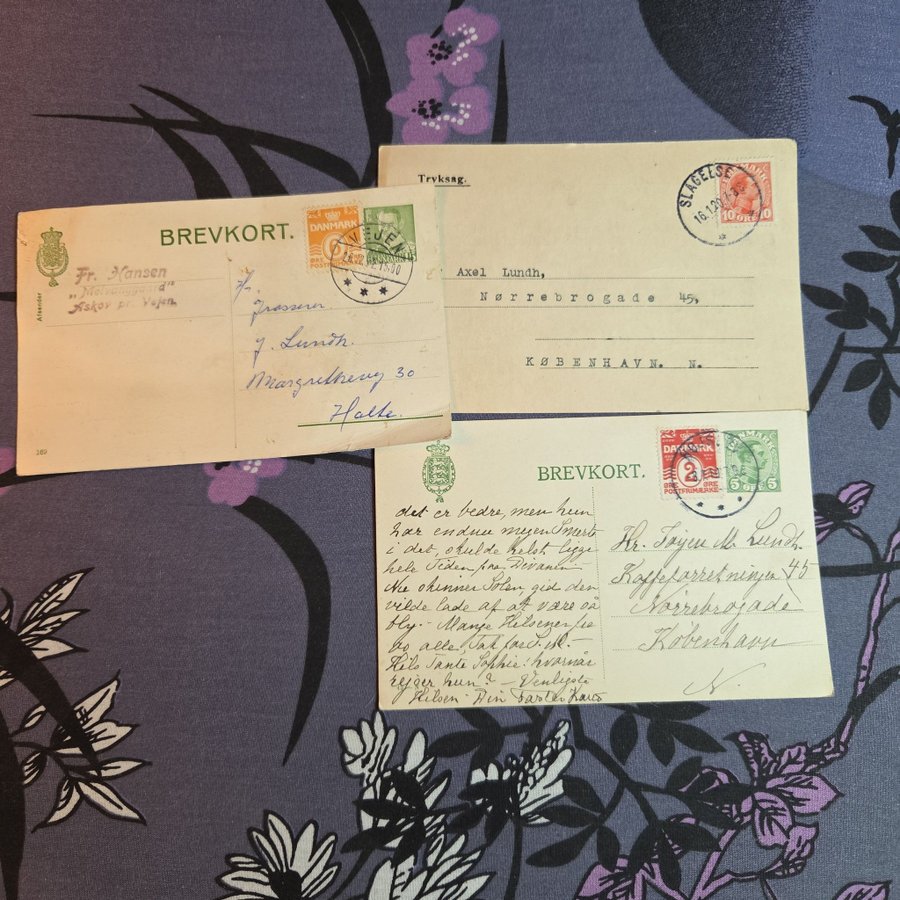 BREVKORT.
Afsender
Fr. Hansen
Askov pr. Vejen.
6
DANMARK
ØRE
POSTFRIMÆRKE
VEJEN
Hr.
Grosserer
J. Lundh.
Margrethevej 30
Holte.
169
Tryksag.
SLAGELSE
16.1.20.
10 ØRE 10
Axel Lundh,
Nørrebrogade 45,
KØBENHAVN. N.
BREVKORT.
DANMARK
2
ØRE
POSTFRIMÆRKE
5 ØRE 5
det er bedre, men hun
har endnu megen Smerte
i det, skulde helst ligge
hele Tiden paa Divanen
Nu skinner Solen, gid den
vilde lade af at være så
bly. Mange Hilsener
alle, Tak
Hils Tante Sophie: hvornår
rejser hun? - Venligste
Hilsen Din Faster
Hr. M. Lundh.
Kaffeforretningen 45
Nørrebrogade
København
N.